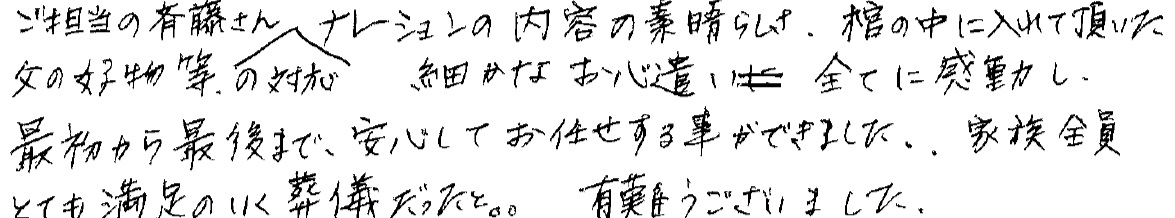 ご担当の斉藤さんの対応 ナレーションの内容の素晴らしさ、棺の中に入れて頂いた
父の好物等、細かなお心遣い 全てに感動し、
最初から最後まで、安心してお任せする事ができました。. 家族全員
とても満足のいく葬儀だったと。。 有難うございました。